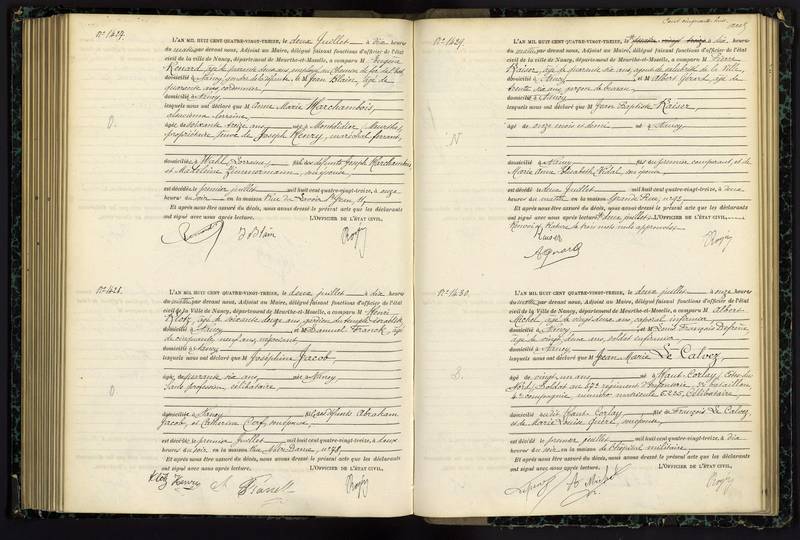 N° 1427.
L'AN MIL HUIT CENT QUATRE-VINGT-TREIZE, le deux Juillet à dix heures
du matin par devant nous, Adjoint au Maire, délégué faisant fonctions d'officier de l'état
civil de la ville de Nancy, département de Meurthe-et-Moselle, a comparu M Eugène
Renard, âgé de
domicilié à Nancy, gendre de la défunte, et M Jean Blain, âgé de
quarante ans, cordonnier,
domicilié à Nancy
lesquels nous ont déclaré que M Anne Marie Marchambois,
alsacienne lorraine,
âgée de soixante treize ans née à Montdidier, Meurthe,
propriétaire, veuve de Joseph Henry, maréchal ferrant,
domiciliée à Wahl, Lorraine, fille des défunts Joseph Marchambois
et Madeleine Zimmermann, conjoints,
est décédée le premier juillet mil huit cent quatre-vingt-treize, à onze
heures du soir en la maison Rue du Lavoir St Jean, 11,
Et après nous être assuré du décès, nous avons dressé le présent acte que les déclarants
ont signé avec nous après lecture. L'OFFICIER DE L'ÉTAT CIVIL,
J Blain
N° 1428.
L'AN MIL HUIT CENT QUATRE-VINGT-TREIZE, le deux juillet à dix heures
du matin par devant nous, Adjoint au Maire, délégué faisant fonctions d'officier de l'état
civil de la Ville de Nancy, département de Meurthe-et-Moselle, a comparu M Henri
Klotz, âgé de soixante douze ans, gardien du temple israélite
domicilié à Nancy et M Samuel Franck, âgé
de cinquante neuf ans, négociant,
domicilié à Nancy
lesquels nous ont déclaré que M Joséphine Jacob
âgée de quarante six ans née à Nancy,
sans profession, célibataire
domiciliée à Nancy fille des défunts Abraham
Jacob, et Catherine Cerf, conjoints,
est décédée le premier juillet mil huit cent quatre-vingt-treize, à deux
heures du soir en la maison Rue Notre Dame, n° 78,
Et après nous être assuré du décès, nous avons dressé le présent acte que les déclarants
ont signé avec nous après lecture. L'OFFICIER DE L'ÉTAT CIVIL,
Klotz Henry
N° 1429.
L'AN MIL HUIT CENT QUATRE-VINGT-TREIZE, le à dix heures
du matin par devant nous, Adjoint au Maire, délégué faisant fonctions d'officier de l'état
civil de la ville de Nancy, département de Meurthe-et-Moselle, a comparu M Pierre
Kaiser, âgé de quarante six ans, agent de salubrité de la Ville,
domicilié à Nancy et M Albert Gérard, âgé de
trente six ans, garçon de bureau,
domicilié à Nancy
lesquels nous ont déclaré que M Jean Baptiste Kaiser
âgé de onze mois et demi né à Nancy
domicilié à Nancy fils du premier comparant, et de
Marie Anne Elisabeth Vidal, conjoints,
est décédé le deux Juillet mil huit cent quatre-vingt-treize, à deux
heures du matin en la maison Grande Rue, n° 92,
Et après nous être assuré du décès, nous avons dressé le présent acte que les déclarants
ont signé avec nous après lecture. deux juillet. L'OFFICIER DE L'ÉTAT CIVIL,
Renvoi et Rature de trois mots nuls approuvés
Kaiser
A Gérard
N° 1430.
L'AN MIL HUIT CENT QUATRE-VINGT-TREIZE, le deux juillet à onze heures
du matin par devant nous, Adjoint au Maire, délégué faisant fonctions d'officier de l'état
civil de la Ville de Nancy, département de Meurthe-et-Moselle, a comparu M Albert
Michel, âgé de vingt deux ans, caporal infirmier
domicilié à Nancy et M Louis François
âgé de vingt deux ans, soldat infirmier,
domicilié à Nancy
lesquels nous ont déclaré que M Jean Marie Le Calvez
âgé de vingt un ans né à Haut-Corlay, Côtes du
Nord, soldat au régiment d'Infanterie, bataillon,
4e compagnie, numéro matricule 5225, célibataire,
domicilié à Haut-Corlay fils de François Le Calvez
et de Marie Louise conjoints,
est décédé le premier juillet mil huit cent quatre-vingt-treize, à dix
heures du soir en la maison de l'hôpital militaire,
Et après nous être assuré du décès, nous avons dressé le présent acte que les déclarants
ont signé avec nous après lecture. L'OFFICIER DE L'ÉTAT CIVIL,
A Michel